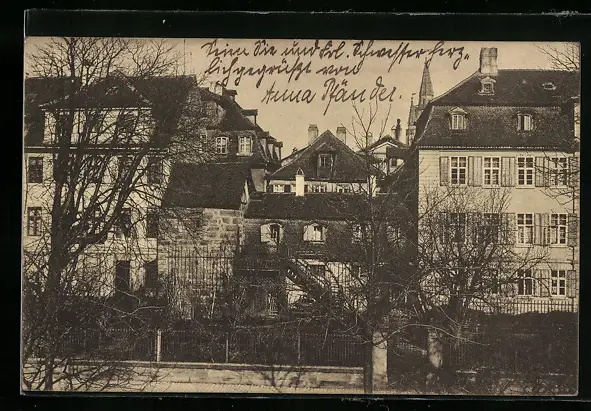 Seien Sie und Frl. Schwester herz-
lich gegrüßt von
Anna Pfänder.